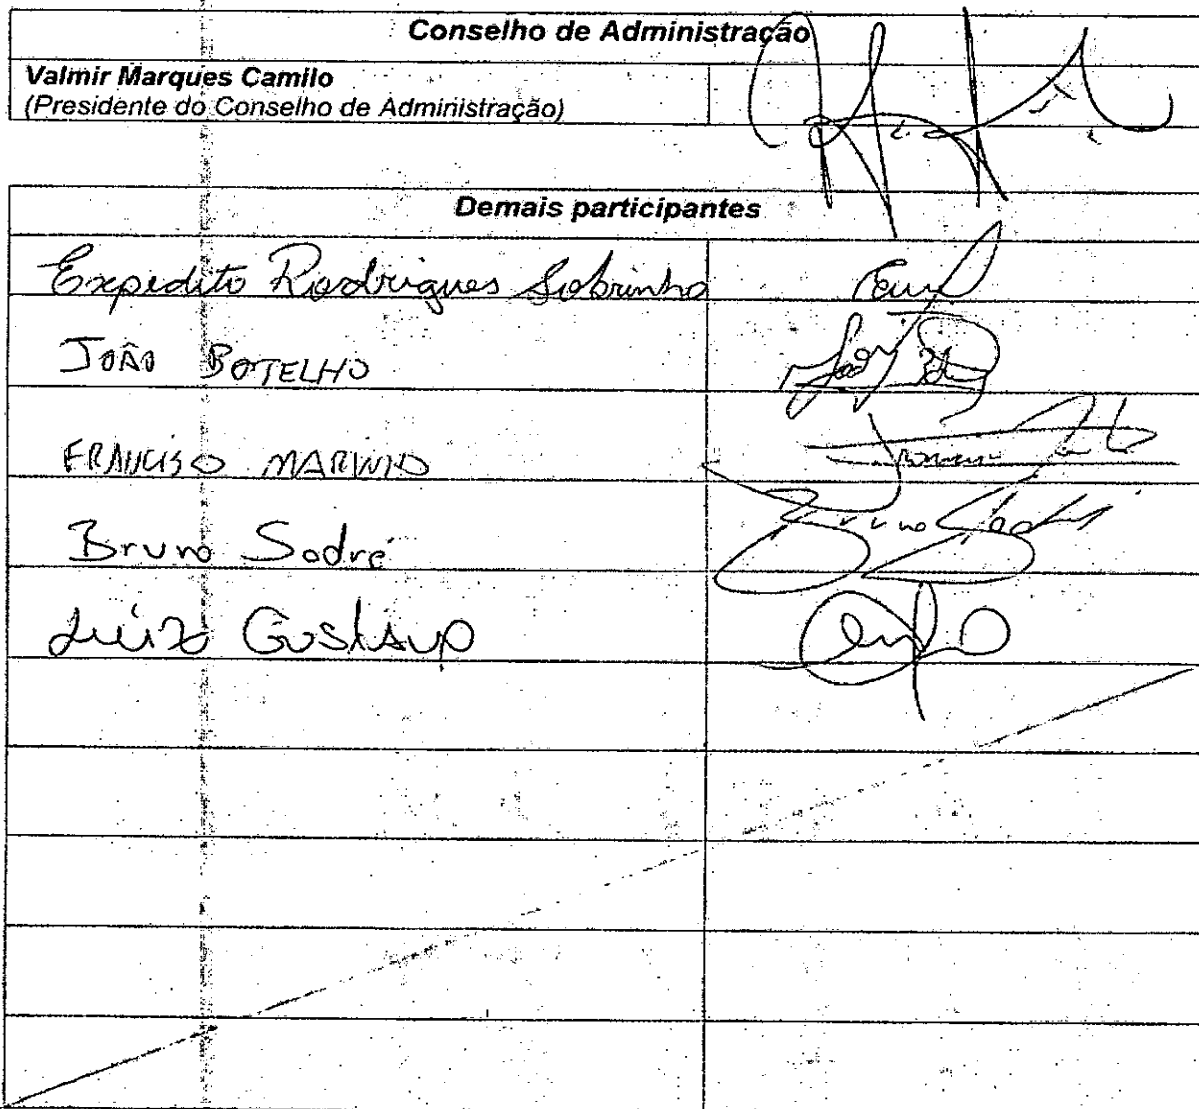 Conselho de Administração
Valmir Marques Camilo
(Presidente do Conselho de Administração)
Demais participantes
Expedito Rodrigues Sobrinho
JOÃO BOTELHO
FRANCISCO MARINHO
Bruno Sodré
Bruno Sodré
Luiz Gustavo